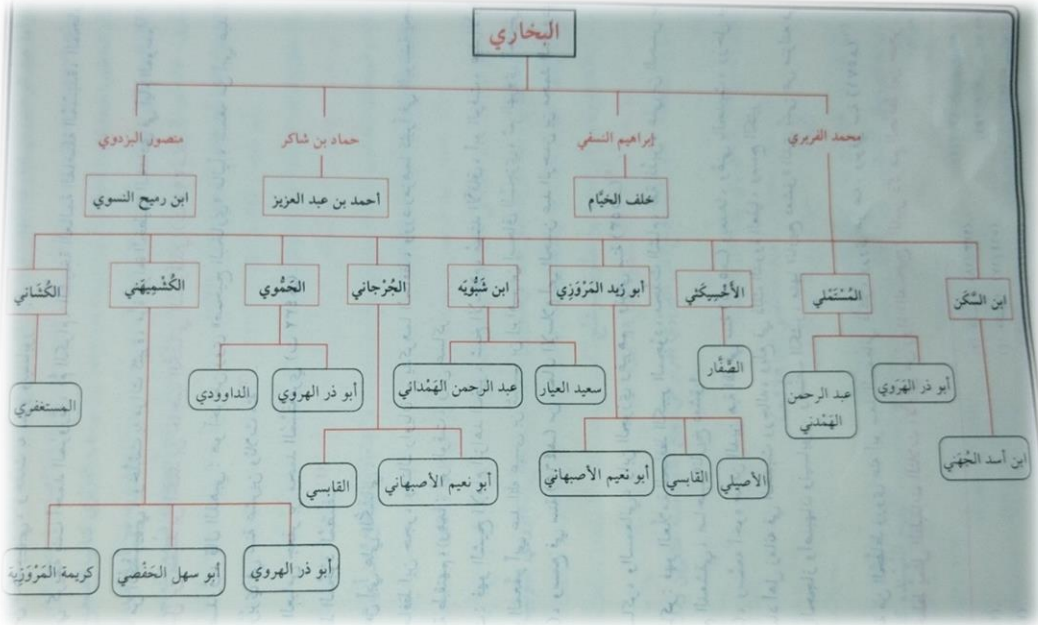 البخاري
محمد الفربري
إبراهيم النسفي
حماد بن شاكر
منصور البزدوي
خلف الخيَّام
أحمد بن عبد العزيز
ابن رميح النسوي
ابن السَّكَن
المُسْتَمْلي
الأَخْسِيكَثي
أبو زيد المَرْوَزي
ابن شَبُّويَه
الجُرْجاني
الحَمُّوي
الكُشْمِيهَني
الكُشَاني
ابن أسد الجُهَني
أبو ذر الهَرَوي
عبد الرحمن
الهَمْدني
الصَّفَّار
الأصيلي
القابسي
أبو نعيم الأصبهاني
سعيد العيار
عبد الرحمن الهَمْداني
أبو نعيم الأصبهاني
القابسي
أبو ذر الهروي
الداوودي
أبو ذر الهروي
أبو سهل الحَفْصي
كريمة المَرْوَزِية
المستغفري